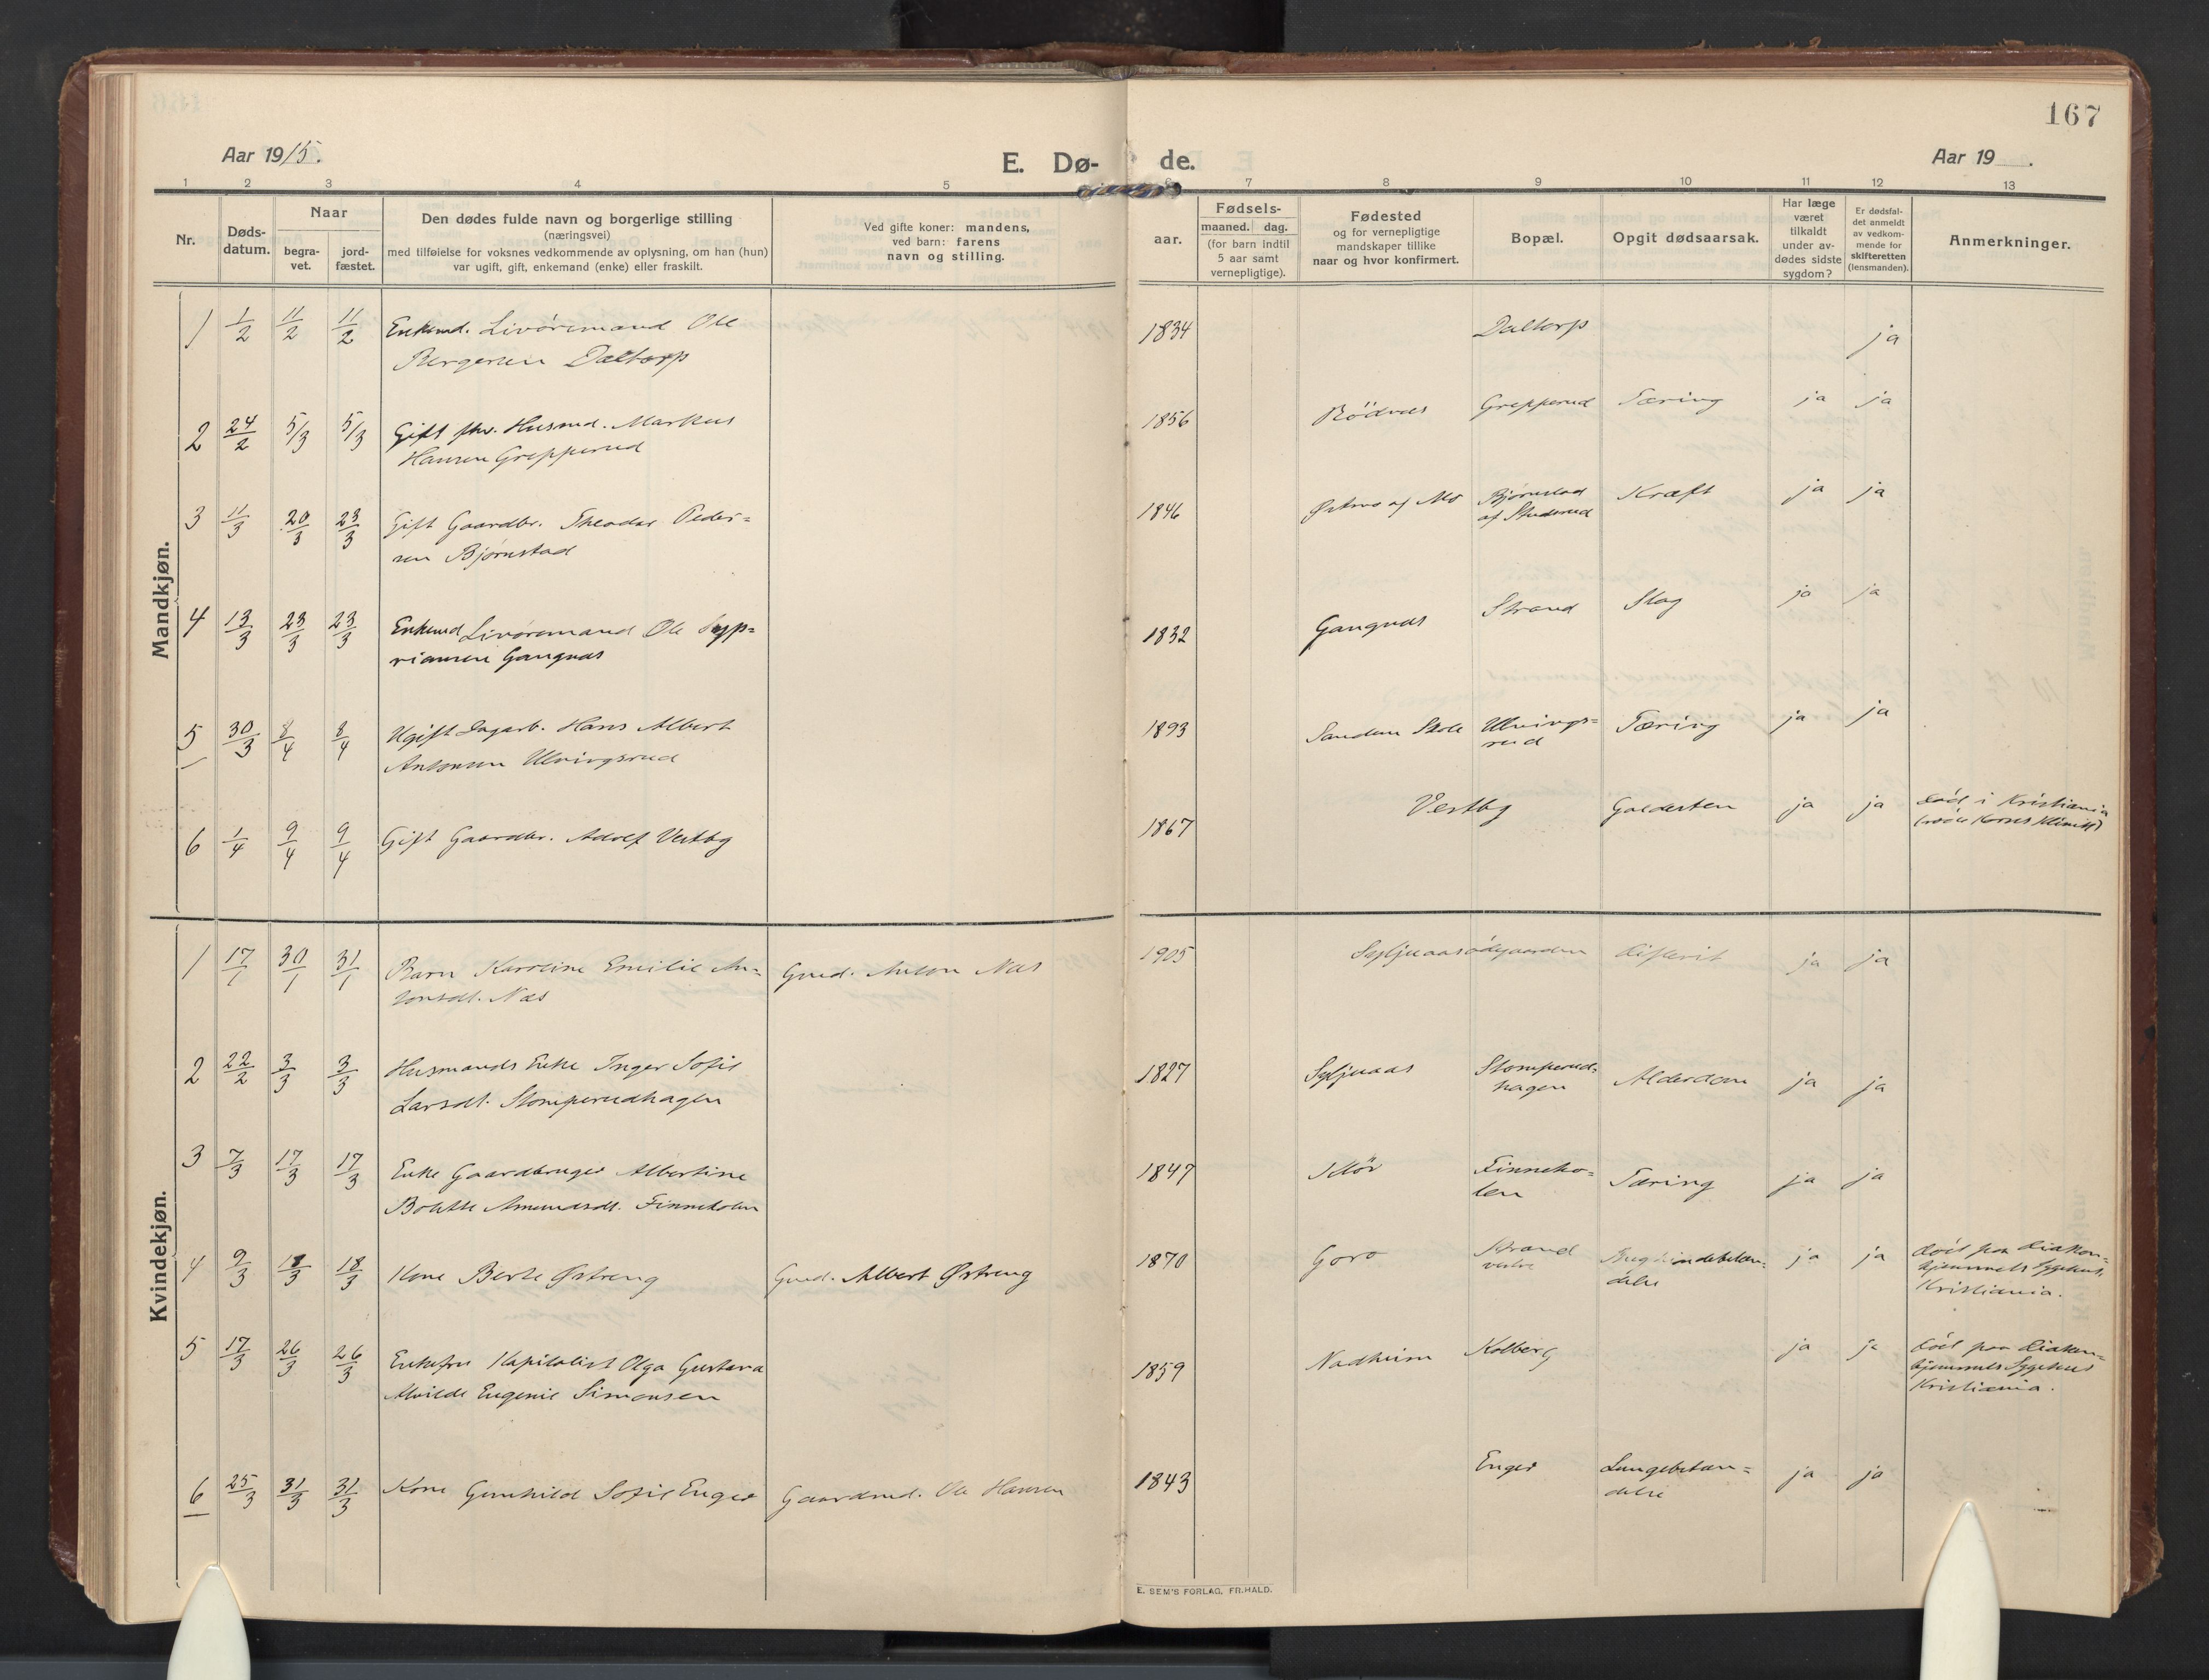 167
Aar 1915.
E. Dø- de.
Aar 19 .
1 2 3 4 5 6 7 8 9 10 11 12 13
Nr.
Døds-
datum.
Naar
begra-
vet.
jord-
fæstet.
Den dødes fulde navn og borgerlige stilling
(næringsvei)
med tilføielse for voksnes vedkommende av oplysning, om han (hun)
var ugift, gift, enkemand (enke) eller fraskilt.
Ved gifte koner: mandens,
ved barn: farens
navn og stilling.
aar.
Fødsels-
maaned. dag.
(for barn indtil
5 aar samt
vernepligtige).
Fødested
og for vernepligtige
mandskaper tillike
naar og hvor konfirmert.
Bopæl.
Opgit dødsaarsak.
Har læge
været
tilkaldt
under av-
dødes sidste
sygdom?
Er dødsfal-
det anmeldt
av vedkom-
mende for
skifteretten
(lensmanden).
Anmerkninger.
Mandkjøn.
1 1/2 11/2 11/2 Enkemd. Livøremand Ole 1834 Daltorp ja
Bergersen Daltorp
2 24/2 5/3 5/3 Gift fhv. Husmd. Markus 1856 Rödnes Grepperud Tæring ja ja
Hansen Grepperud
3 11/3 20/3 23/3 Gift Gaardbr. Theodor Peder- 1846 af Mo Bjørnstad Kræft ja ja
sen Bjørnstad af
4 13/3 23/3 23/3 Enkemd Livøremand Ole Syp- 1832 Gangnæs Strand Slag ja ja
riansen Gangnæs
5 30/3 8/4 8/4 Ugift Dagarb. Hans Albert 1893 Sandem Skole Ulvings- Tæring ja ja
Antonsen Ulvingsrud rud
6 1/4 9/4 9/4 Gift Gaardbr. Adolf Vestby 1867 Vestby Galdesten ja ja död i Kristiania
(röde Korses Klinik)
Kvindekjøn.
1 17/1 30/1 31/1 Barn Karoline Emilie An- Gmd. Anton Næs 1905 Syljuaasødegaarden difterit ja ja
tonsdt. Næs
2 22/2 3/3 3/3 Husmands Enke Inger Sofie 1827 Syljuaas Stomperud- Alderdom ja ja
Larsdt. Stomperudhagen hagen
3 7/3 17/3 17/3 Enke Gaardbruger Albertine 1847 Klör Finneko- Tæring ja ja
Bolette Amundsdt. Finnekolen len
4 9/3 18/3 18/3 Kone Berte Østreng Gmd. Albert Østreng 1870 Goro Strand ja ja död paa Diakon-
vestre delse hjemmets Sygehus,
Kristiania.
5 17/3 26/3 26/3 Enkefru Kapitalist Olga Gustava 1859 Nadheim Kolberg ja ja död paa Diakon-
Alvilde Eugenie Simonsen hjemmets Sygehus
Kristiania.
6 25/3 31/3 31/3 Kone Gunhild Sofie Enger Gaardmd. Ole Hansen 1843 Enger Lungebetæn- ja ja
delse
E. SEM'S FORLAG, FR.HALD.